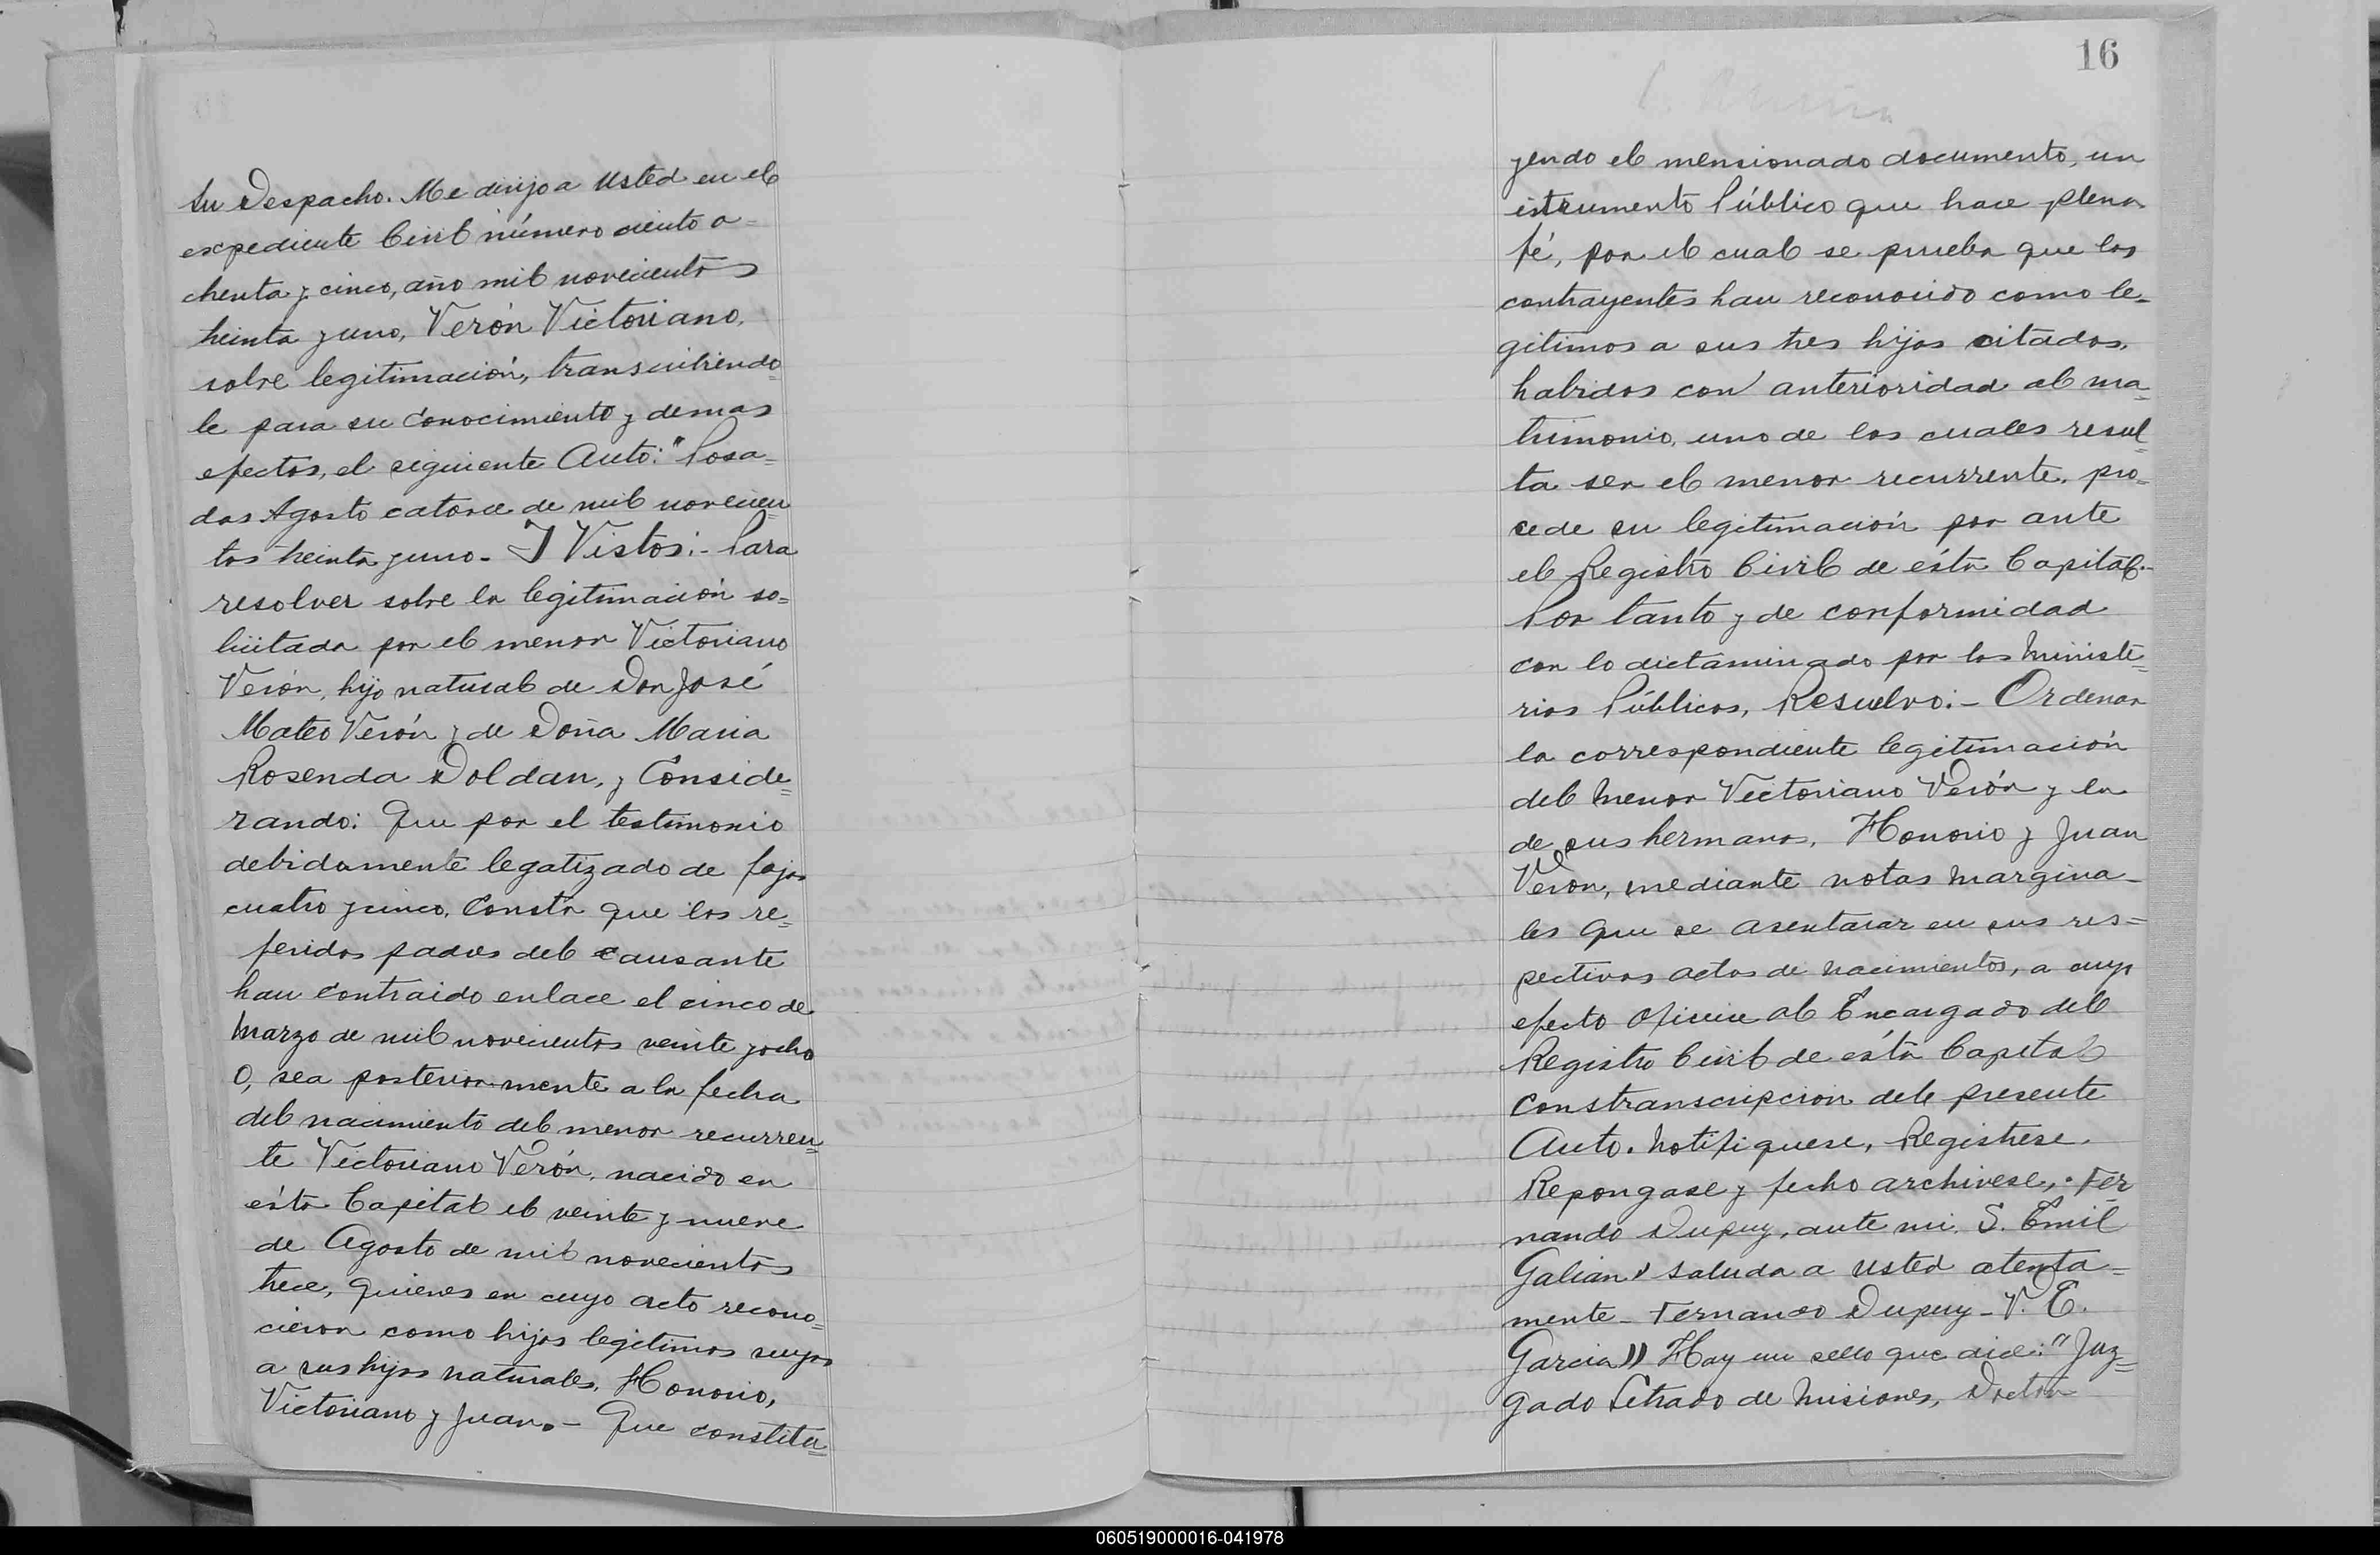 su Despacho. Me dirijo a Usted en el
expediente Civil número ciento o=
chenta y cinco, año mil novecientos
treinta y uno, Verón Victoriano,
sobre legitimación, transcribiendo=
le para su conocimiento y demas
efectos, el siguiente Auto: "Posa=
das Agosto catorce de mil novecien=
tos treinta y uno - Y Vistos:- Para
resolver sobre la legitimación so=
licitada por el menor Victoriano
Verón, hijo natural de Don José
Mateo Verón y de Doña Maria
Rosenda Doldan, y Conside=
rando: Que por el testimonio
debidamente legatizado de fojas
cuatro y cinco, Consta que los re=
feridos padres del causante
han contraido enlace el cinco de
Marzo de mil novecientos veinte y ocho
O, sea posteriormente a la fecha
del nacimiento del menor recurren=
te Victoriano Verón, nacido en
ésta Capital el veinte y nueve
de Agosto de mil novecientos
trece, quienes en cuyo acto recono=
cieron como hijos legitimos suyos
a sus hijos naturales, Honorio,
Victoriano y Juan.- Que constitu=
16
yendo el mensionado documento, un
istrumento Público que hace plena
fé, por el cual se prueba que los
contrayentes han reconocido como le=
gitimos a sus tres hijos citados,
habidos con anterioridad al ma=
trimonio, uno de los cuales resul=
ta ser el menor recurrente, pro=
cede su legitimación por ante
el Registro Civil de ésta Capital.-
Por tanto y de conformidad
con lo dictaminado por los Ministe=
rios Públicos, Resuelvo:- Ordenar
la correspondiente legitimación
del Menor Victoriano Verón y la
de sus hermanos, Honorio y Juan
Verón, mediante notas margina-
les que se asentarar en sus res=
pectivas actas de nacimientos, a cuyo
efecto oficiese al Encargado del
Registro Civil de ésta Capital
Constranscripcion del presente
Auto. Notifiquese, Registrese.
Repongase y fecho archivese,. Fer
nando Dupuy, ante mi. S. Emil
Galian" saluda a usted atenta=
mente - Fernando Dupuy - V. E.
Garcia)) Hay un sello que dice: "Juz=
gado Letrado de Misiones, Doctor
060519000016-041978